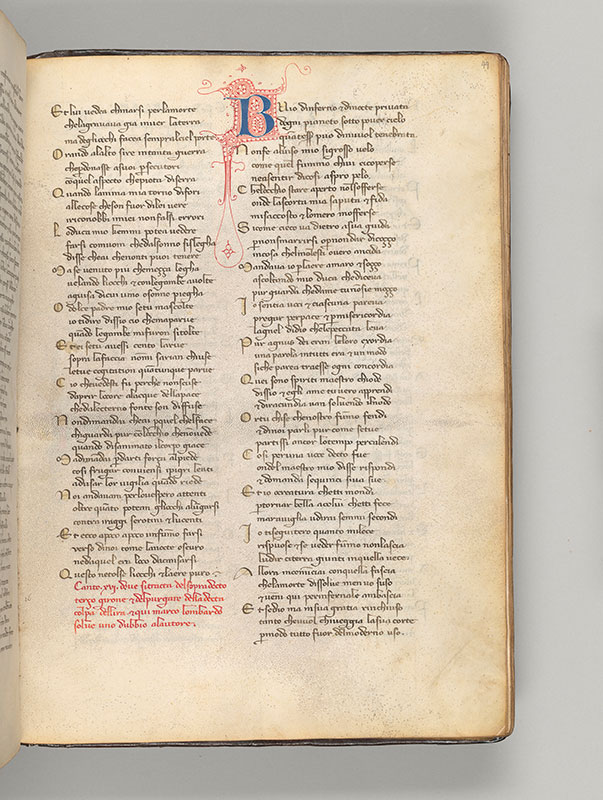 Et lui vedea chinarsi per lamorte
chelagravava gia inver laterra
ma degliocchi facea sempre alciel porte
Orando alalto sire intanta guerra
che perdonasse asuoi persecutori
con quel aspecto che pieta diserra
Quando lanima mia torno difori
alle cose che son fuor dilei vere
io riconobbi imiei non falsi errori
Lo duca mio chemmi potea vedere
farsi comuom che dalsonno sislegha
disse che ai che non ti puoi tenere
Ma se venuto piu chemezza legha
velando liocchi et collegambe avolte
aguisa dicui vino osonno piegha
O dolce padre mio setu mascolte
io tidiro dissio cio chemaparve
quando legambe mifuron sitolte
Et ei setu avessi cento larve
sopra lafaccia non mi sarian chiuse
letue cogitation quantunque parve
Cio chevedesti fu perche nonscuse
daprir lo core alacque dellapace
che daletterno fonte son diffuse
Non dimandai che ai per quel cheffacce
chi guarda pur collocchio che non vede
quando disanimato ilcorpo giace
Ma dimandai per darti forza alpiede
cosi frugar conviensi ipigri lenti
ad usar lor vigilia quando riede
Noi andavam per lovespero attenti
oltre quanto potean gliocchi alungarsi
contra iraggi serotini et lucenti
Et ecco apoco apoco un fumo farsi
verso dinoi come lanocte oscuro
nedaquel era loco dacansarsi
Questo netolse liocchi et laere puro
Canto .xvi. dove sitracta del sopradecto
terzo girone et del purgare della decta
colpa dellira et qui marco lombardo
solve uno dubbio alautore
BUio dinferno et dinocte privata
degni pianeto sotto pover cielo
quantesser puo dinuvol tenebrata
Non fe alviso mio sigrosso velo
come quel fummo chivi cicoperse
neasentir dicosi aspro pelo
Chelocchio stare aperto nolsofferse
onde lascorta mia saputa et fida
misaccosto et lomero mofferse
Si come cieco va dietro asua guida
per non smarrirsi et per non dar dicozzo
incosa chelmolesti o vero ancida
Mandava io per laere amaro et sozzo
ascoltando mio duca che diceva
pur guarda che dame tu nonsie mozzo
Io sentia voci et ciascuna pareva
pregar per pace et per misericordia
lagnel didio che lepeccata leva
Pur agnus dei eran leloro exordia
una parola intutti era et un modo
siche parea traesse ogni concordia
Quei sono spiriti maestro chiodo
dissio et egli ame tu vero apprendi
et diracundia van solvendo ilnodo
Or tu chise chenostro fumo fendi
et dinoi parli pur come setue
partissi ancor lotempo per calendi
Cosi per una voce decto fue
ondel maestro mio disse rispondi
et domanda sequinci siva sue
Et io o creatura chetti mondi
per tornar bella acolui chetti fece
maraviglia udirai semmi secondi
Io tisegujtero quanto milece
rispuose et se veder fumo nonlascia
ludir citerra giunti inquella vece
Allora incominciai conquella fascia
chelamorte dissolve men vo suso
et veni qui per infernale ambascia
Et sedio ma insua gratia rinchiuso
tanto chevuol chiveggia lasua corte
per modo tutto fuor delmoderno uso